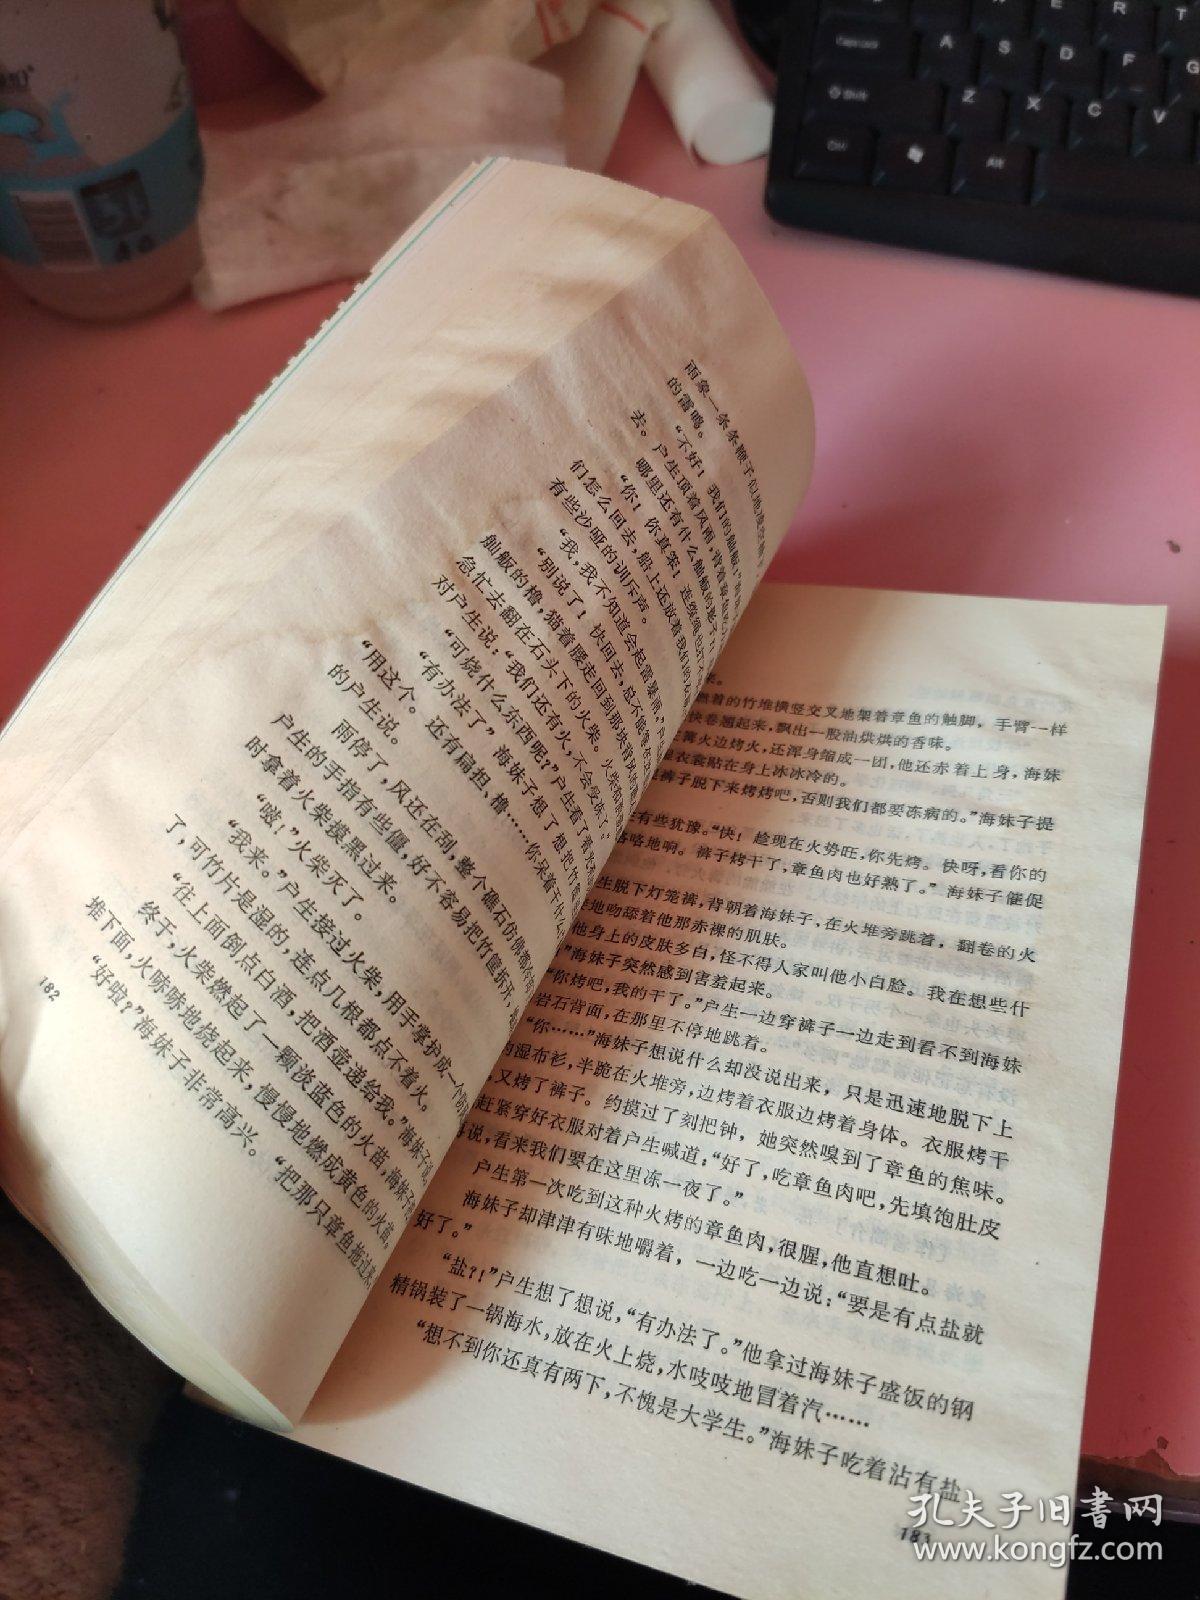 雨象一条条鞭子似地凌空抽
的雷鸣。
“不好！我们的舢舨！”
去。户生顶着风雨，背着
哪里还有什么舢舨的影子
“你！你真笨！连缆绳也打不
们怎么回去，船上还放着我们的
有些沙哑的训斥声。
“我，我不知道会起雷暴雨。”
“别说了！快回去，总不能
舢舨的橹，猫着腰走回到那块背风的
急忙去翻在石头下的火柴。火柴
对户生说：“我们还有火，不会受冻了。”
“可烧什么东西呢？”户生看了看
“有办法了”海妹子想了想把竹
“用这个。还有扁担、橹……你呆着干什么
的户生说。
雨停了，风还在刮，整个礁石仿佛都冷
户生的手指有些僵，好不容易把竹筐拆开，
时拿着火柴摸黑过来。
“啵！”火柴灭了。
“我来。”户生接过火柴，用手掌护成一个
了，可竹片是湿的，连点几根都点不着火。
“往上面倒点白酒，把酒壶递给我。”海妹子说。
终于，火柴燃起了一颗淡蓝色的火苗，海妹子
堆下面，火哧哧地烧起来，慢慢地燃成黄色的火苗。
“好啦？”海妹子非常高兴。“把那只章鱼拖过来，
182
来。
燃着的竹堆横竖交叉地架着章鱼的触脚，手臂一样
快卷翘起来，飘出一股油烘烘的香味。
篝火边烤火，还浑身缩成一团，他还赤着上身，海妹
衣裳贴在身上冰冰冷的。
裤子脱下来烤烤吧，否则我们都要冻病的。”海妹子提
有些犹豫。“快！趁现在火势旺，你先烤。快呀，看你的
咯地啊。裤子烤干了，章鱼肉也好熟了。”海妹子催促
生脱下灯笼裤，背朝着海妹子，在火堆旁跳着，翻卷的火
地吻舔着他那赤裸的肌肤。
他身上的皮肤多白，怪不得人家叫他小白脸。我在想些什
”海妹子突然感到害羞起来。
“你烤吧，我的干了。”户生一边穿裤子一边走到看不到海妹
岩石背面，在那里不停地跳着。
“你……”海妹子想说什么却没说出来，只是迅速地脱下上
的湿布衫，半跪在火堆旁，边烤着衣服边烤着身体。衣服烤干
，又烤了裤子。约摸过了刻把钟，她突然嗅到了章鱼的焦味。
赶紧穿好衣服对着户生喊道：“好了，吃章鱼肉吧，先填饱肚皮
说，看来我们要在这里冻一夜了。”
户生第一次吃到这种火烤的章鱼肉，很腥，他直想吐。
海妹子却津津有味地嚼着，一边吃一边说：“要是有点盐就
好了。”
“盐？！”户生想了想说，“有办法了。”他拿过海妹子盛饭的钢
精锅装了一锅海水，放在火上烧，水吱吱地冒着汽……
“想不到你还真有两下，不愧是大学生。”海妹子吃着沾有盐
183
孔夫子旧书网
www.kongfz.com
Caps Lock
A
S
D
F
G
E
R
T
Shift
Z
X
C
V
Ctrl
Alt